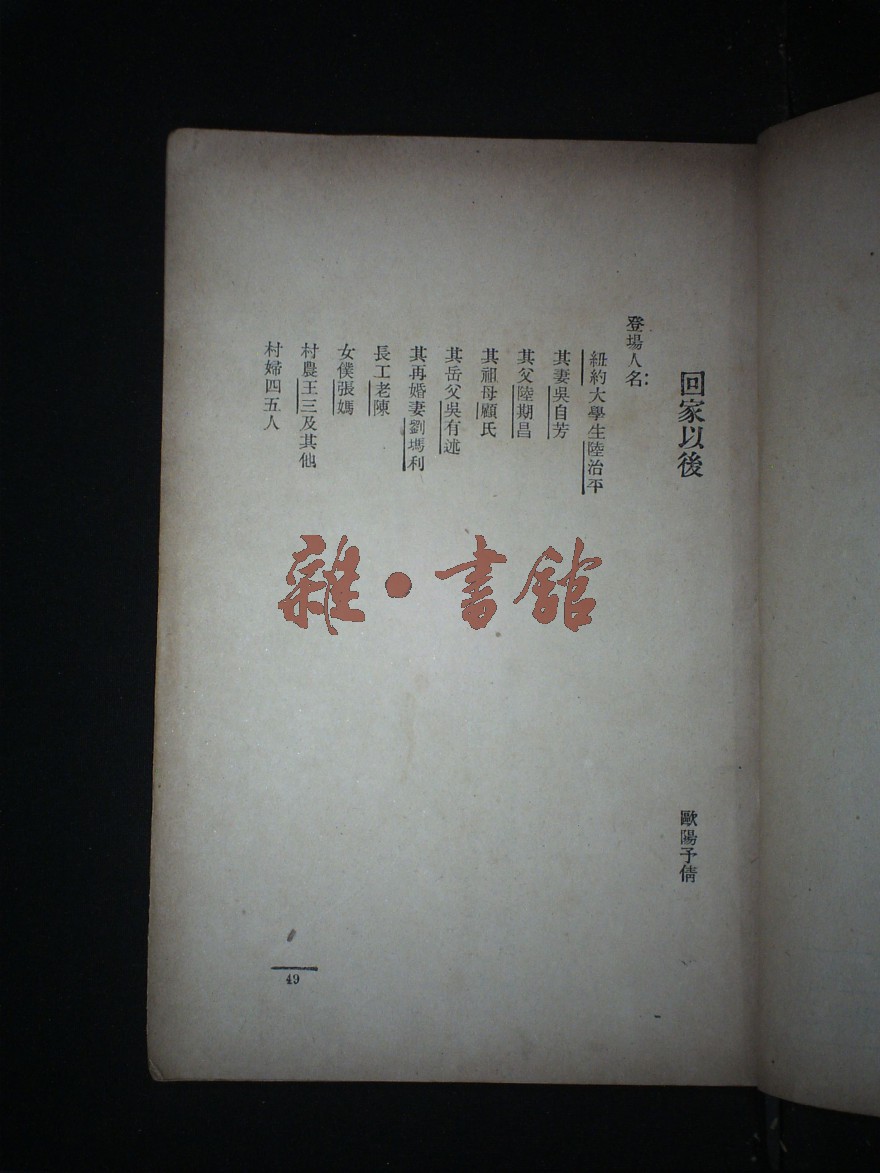 回家以後
歐陽予倩
登場人名：
紐約大學生陸治平
其妻吳自芳
其父陸期昌
其祖母顧氏
其岳父吳有述
其再婚妻劉瑪利
長工老陳
女僕張媽
村農王三及其他
村婦四五人
雜·書館
49